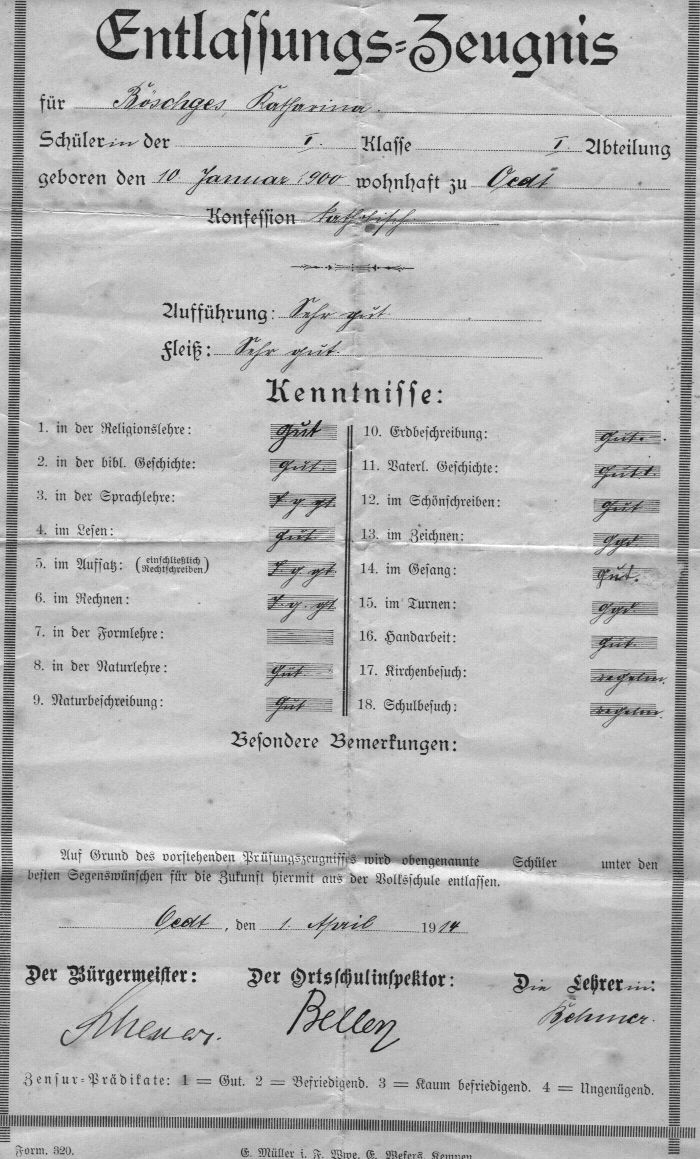 Entlassungs-Zeugnis
für Böschges Katharina.
Schülerin der I. Klasse I Abteilung
geboren den 10 Januar 1900 wohnhaft zu Oedt
Konfession katholisch
Aufführung: Sehr gut
Fleiß: Sehr gut.
Kenntnisse:
1. in der Religionslehre: Gut
2. in der bibl. Geschichte: Gut.
3. in der Sprachlehre:
4. im Lesen: Gut
5. im Aufsatz: (einschließlich Rechtschreiben)
6. im Rechnen:
7. in der Formlehre:
8. in der Naturlehre: Gut
9. Naturbeschreibung: Gut
10. Erdbeschreibung: Gut.
11. Vaterl. Geschichte:
12. im Schönschreiben: Gut
13. im Zeichnen: Ggd.
14. im Gesang: Gut.
15. im Turnen: Ggd.
16. Handarbeit: Gut.
17. Kirchenbesuch: regelm.
18. Schulbesuch: regelm.
Besondere Bemerkungen:
Auf Grund des vorstehenden Prüfungszeugnisses wird obengenannte Schüler unter den
besten Segenswünschen für die Zukunft hiermit aus der Volksschule entlassen.
Oedt, den 1. April 1914
Der Bürgermeister: Der Ortsschulinspektor: Die Lehrerin:
Zensur-Prädikate: 1 = Gut. 2 = Befriedigend. 3 = Kaum befriedigend. 4 = Ungenügend.
Form. 320. E. Müller i. F. Wwe. E. Wefers, Kempen